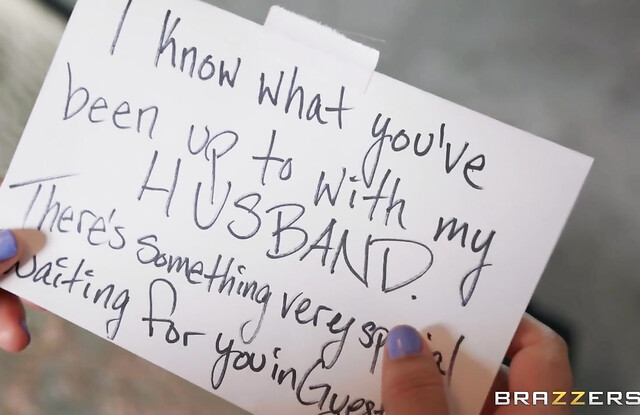 I know what you've
been up to with my
HUSBAND.
There's something very special
waiting for you in Gues
BRAZZERS